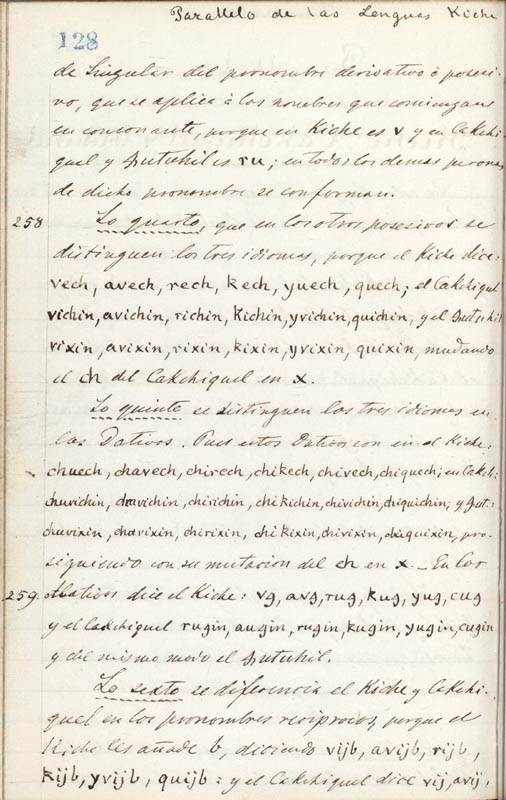 Paralelo de las Lenguas Kiche
128
de Singular del pronombre derivativo ò posesi-
vo, que se aplica à los nombres que comienzan
en consonante, porque en Kiche es v y en Cakchi-
quel y Zutuhil es ru; en todos los demas personas
de dicho pronombre se conforman.
258 Lo quarto, que en los otros posesivos se
distinguen los tres idiomas, porque el Kiche dice:
vech, avech, rech, kech, yuech, quech; el Cakchiquel
vichin, avichin, richin, Kichin, yvichin, quichin, y el Zutuhil
vixin, avixin, rixin, kixin, yvixin, quixin, mudando
el ch del Cakchiquel en x.
Lo quinto se distinguen los tres idiomas en
los Dativos. Pues estos Dativos son en el Kiche,
chuech, chavech, chirech, chikech, chivech, chiquech; en Cakch:
chuvichin, chavichin, chirichin, chi kichin, chivichin, chiquichin; y Zut:
chuvixin, chavixin, chirixin, chi kixin, chivixin, chiquixin, pro-
siguiendo con su mutacion del ch en x. _ En los
259. Ablativos dice el Kiche: vg, avg, rug, kug, yug, cug
y el Cakchiquel rugin, augin, rugin, kugin, yugin, cugin
y del mismo modo el Zutuhil.
Lo sexto se diferencia el Kiche y Cakchi-
quel en los pronombres reciprocos, porque el
Kiche les añade b, diciendo vijb, avijb, rijb,
kijb, yvijb, quijb: y el Cakchiquel dice vij, avij,